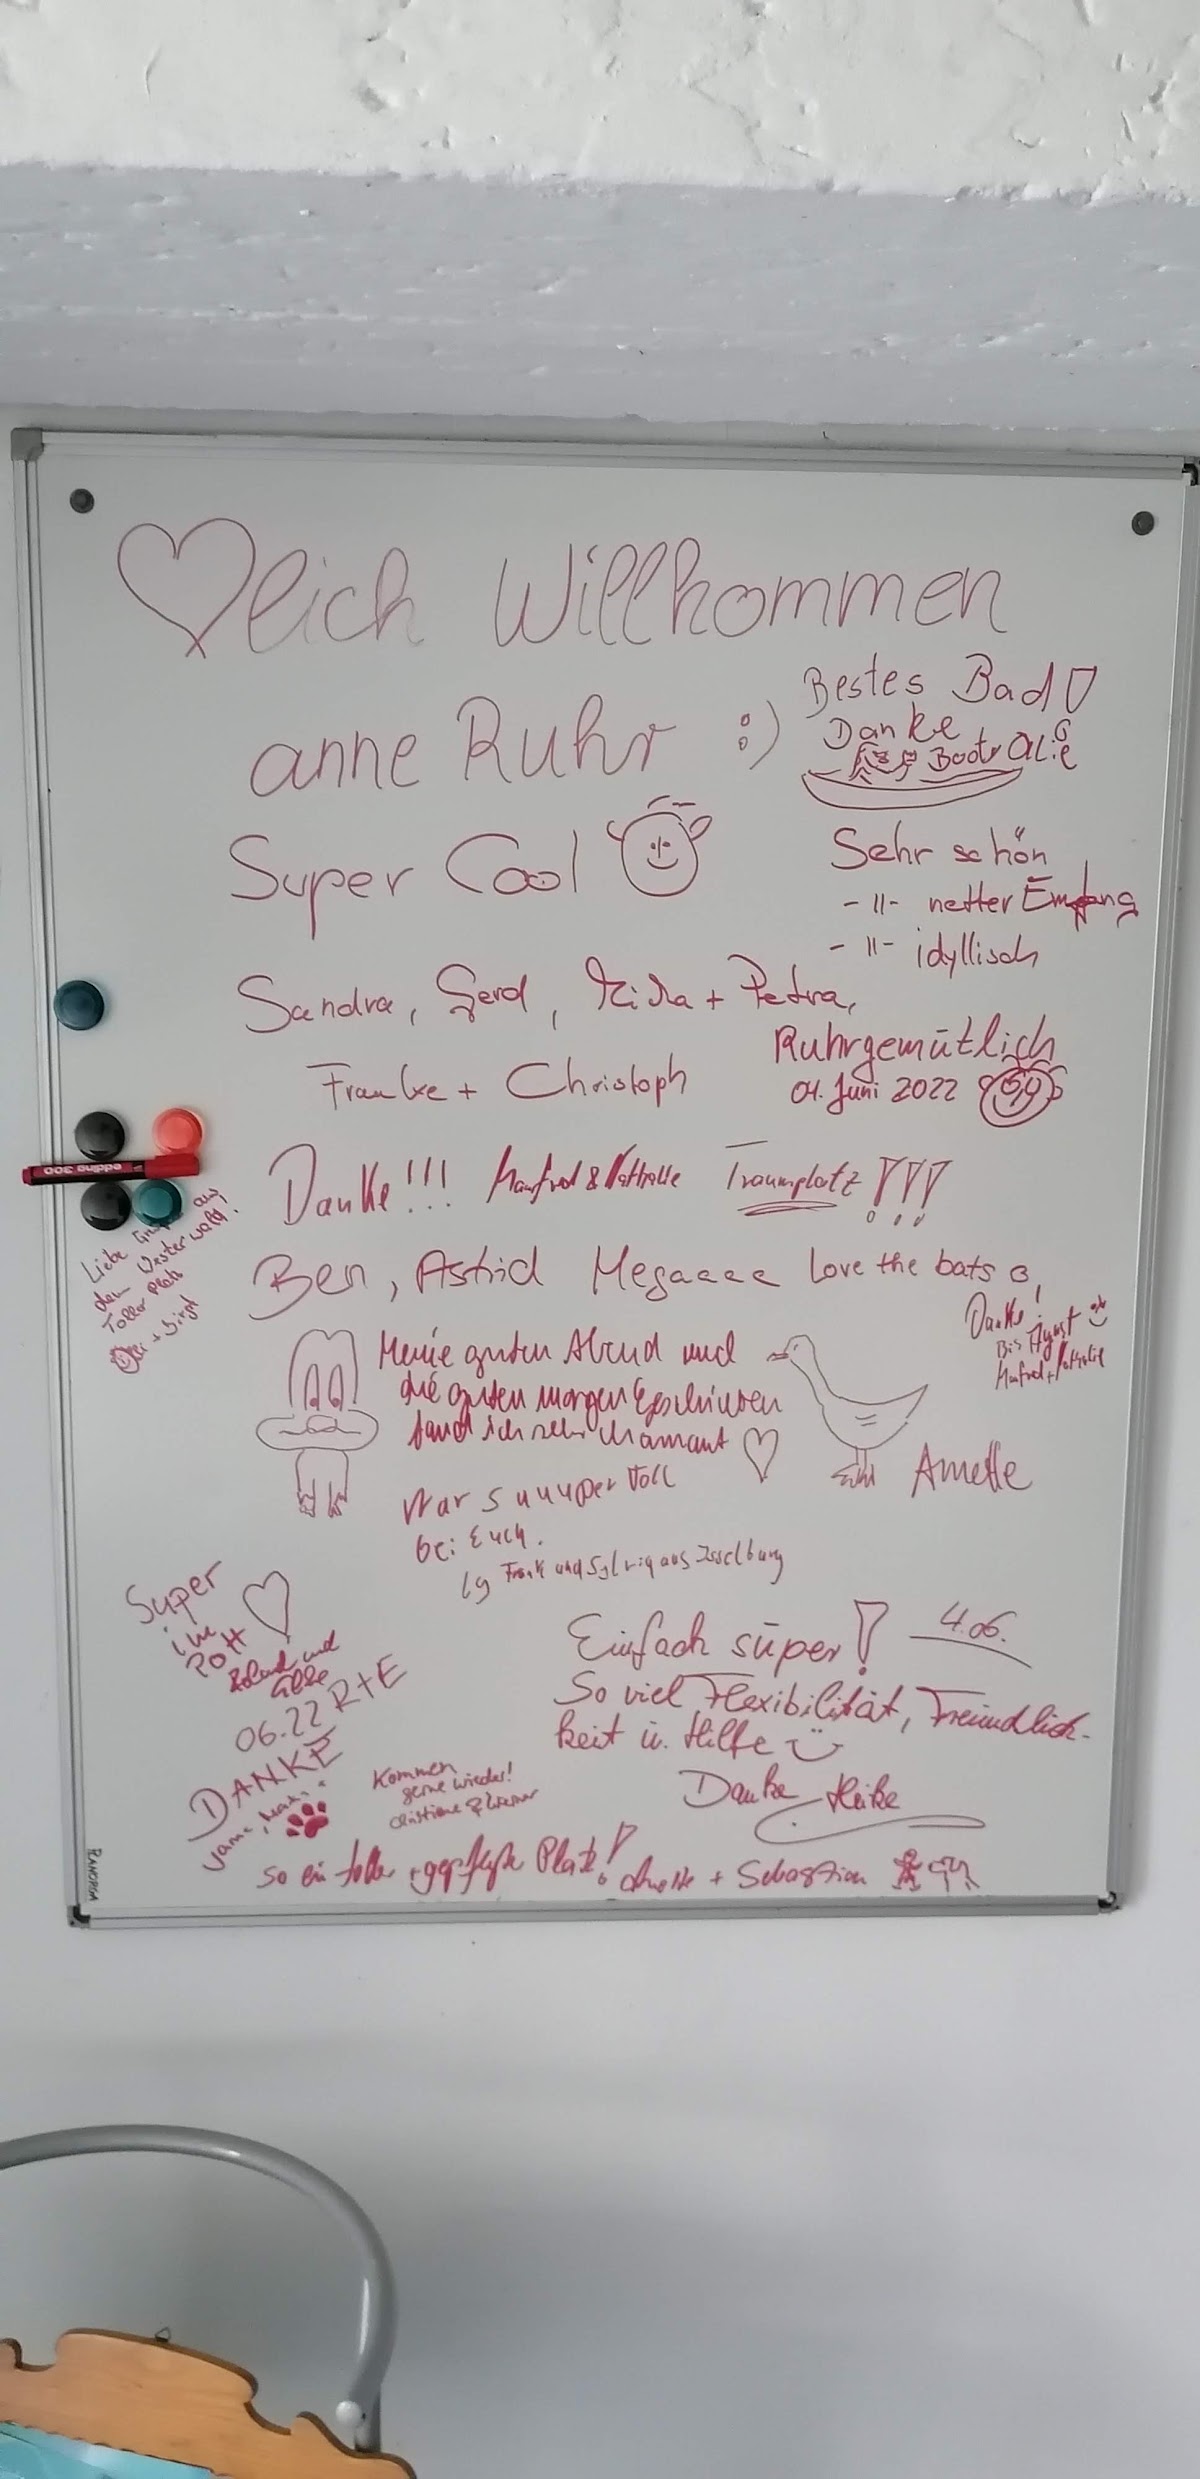 lich Willkommen
anne Ruhr :)
Bestes Bad
Danke
Super Cool
Sehr schön
-"- netter Empfang
-"- idyllisch
Sandra, Gerd, + Petra,
Frauke + Christoph
Ruhrgemütlich
04. Juni 2022
edding 300
Danke!!! Manfred & Nathalie Traumplatz!!!
Liebe Grüße aus
dem Westerwald!
Toller Platz
Ben, Astrid Megaaaa Love the bats
Danke!
Bis August
Manfred + Nathalie
guten Abend und
die guten morgen Geschichten
fand ich sehr charmant
Annette
War suuuper toll
bei Euch.
lg Frank und aus Isselburg
Super
im
POTT
Roland und
06.22 R+E
DANKE
Einfach super! 4.06.
So viel Flexibilität, Freundlich-
keit u. Hilfe
Danke Heike
Kommen
gerne wieder!
Christiane & Werner
So ein toller + gepflegter Platz! Anette + Sebastian
PLANORGA